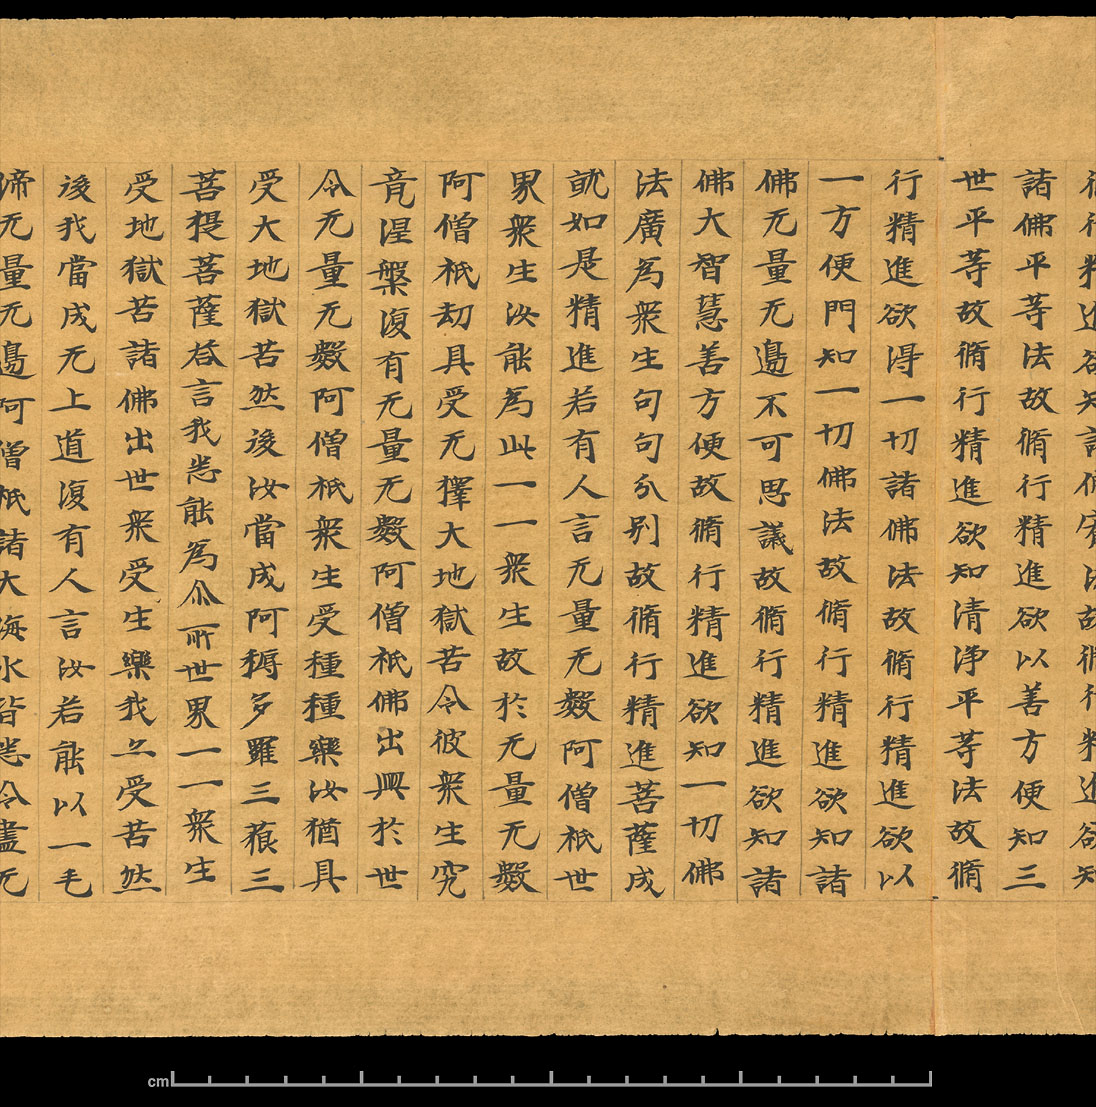 脩行精進欲知諸佛實法故脩行精進欲知
諸佛平等法故脩行精進欲以善方便知三
世平等故脩行精進欲知清淨平等法故脩
行精進欲得一切諸佛法故脩行精進欲以
一方便門知一切佛法故脩行精進欲知諸
佛无量无邊不可思議故脩行精進欲知諸
佛大智慧善方便故脩行精進欲知一切佛
法廣為衆生句句分别故脩行精進菩薩成
就如是精進若有人言无量无數阿僧祇世
界衆生汝能為此一一衆生故於无量无數
阿僧祇劫具受无擇大地獄苦令彼衆生究
竟涅槃復有无量无數阿僧祇佛出興於世
令无量无數阿僧祇衆生受種種樂汝猶具
受大地獄苦然後汝當成阿耨多羅三藐三
菩提菩薩荅言我悉能為尒所世界一一衆生
受地獄苦諸佛出世衆受生樂我亦受苦然
後我當成无上道復有人言汝若能以一毛
渧无量无邊阿僧祇諸大海水皆悉令盡无
cm